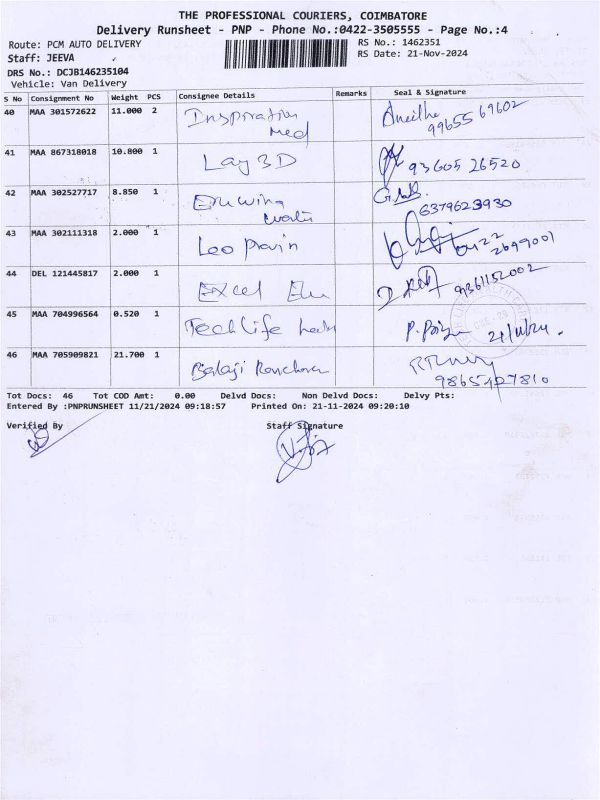 THE PROFESSIONAL COURIERS, COIMBATORE
Delivery Runsheet - PNP - Phone No.:0422-3505555 - Page No.:4
Route: PCM AUTO DELIVERY
RS No.: 1462351
Staff: JEEVA
RS Date: 21-Nov-2024
DRS No.: DCJB146235104
Vehicle: Van Delivery
S No Consignment No Weight PCS Consignee Details Remarks Seal & Signature
40 MAA 301572622 11.000 2 Inspiration Med 99655 69602
41 MAA 867318018 10.800 1 Lay 3D 93605 26520
42 MAA 302527717 8.850 1 6379623930
43 MAA 302111318 2.000 1 Leo Pravin 0422 2699001
44 DEL 121445817 2.000 1 Excel 9361152002
45 MAA 704996564 0.520 1 Tech Life 21/11/24.
46 MAA 705909821 21.700 1 Balaji 9865427810
Tot Docs: 46 Tot COD Amt: 0.00 Delvd Docs: Non Delvd Docs: Delvy Pts:
Entered By :PNPRUNSHEET 11/21/2024 09:18:57 Printed On: 21-11-2024 09:20:10
Verified By Staff Signature